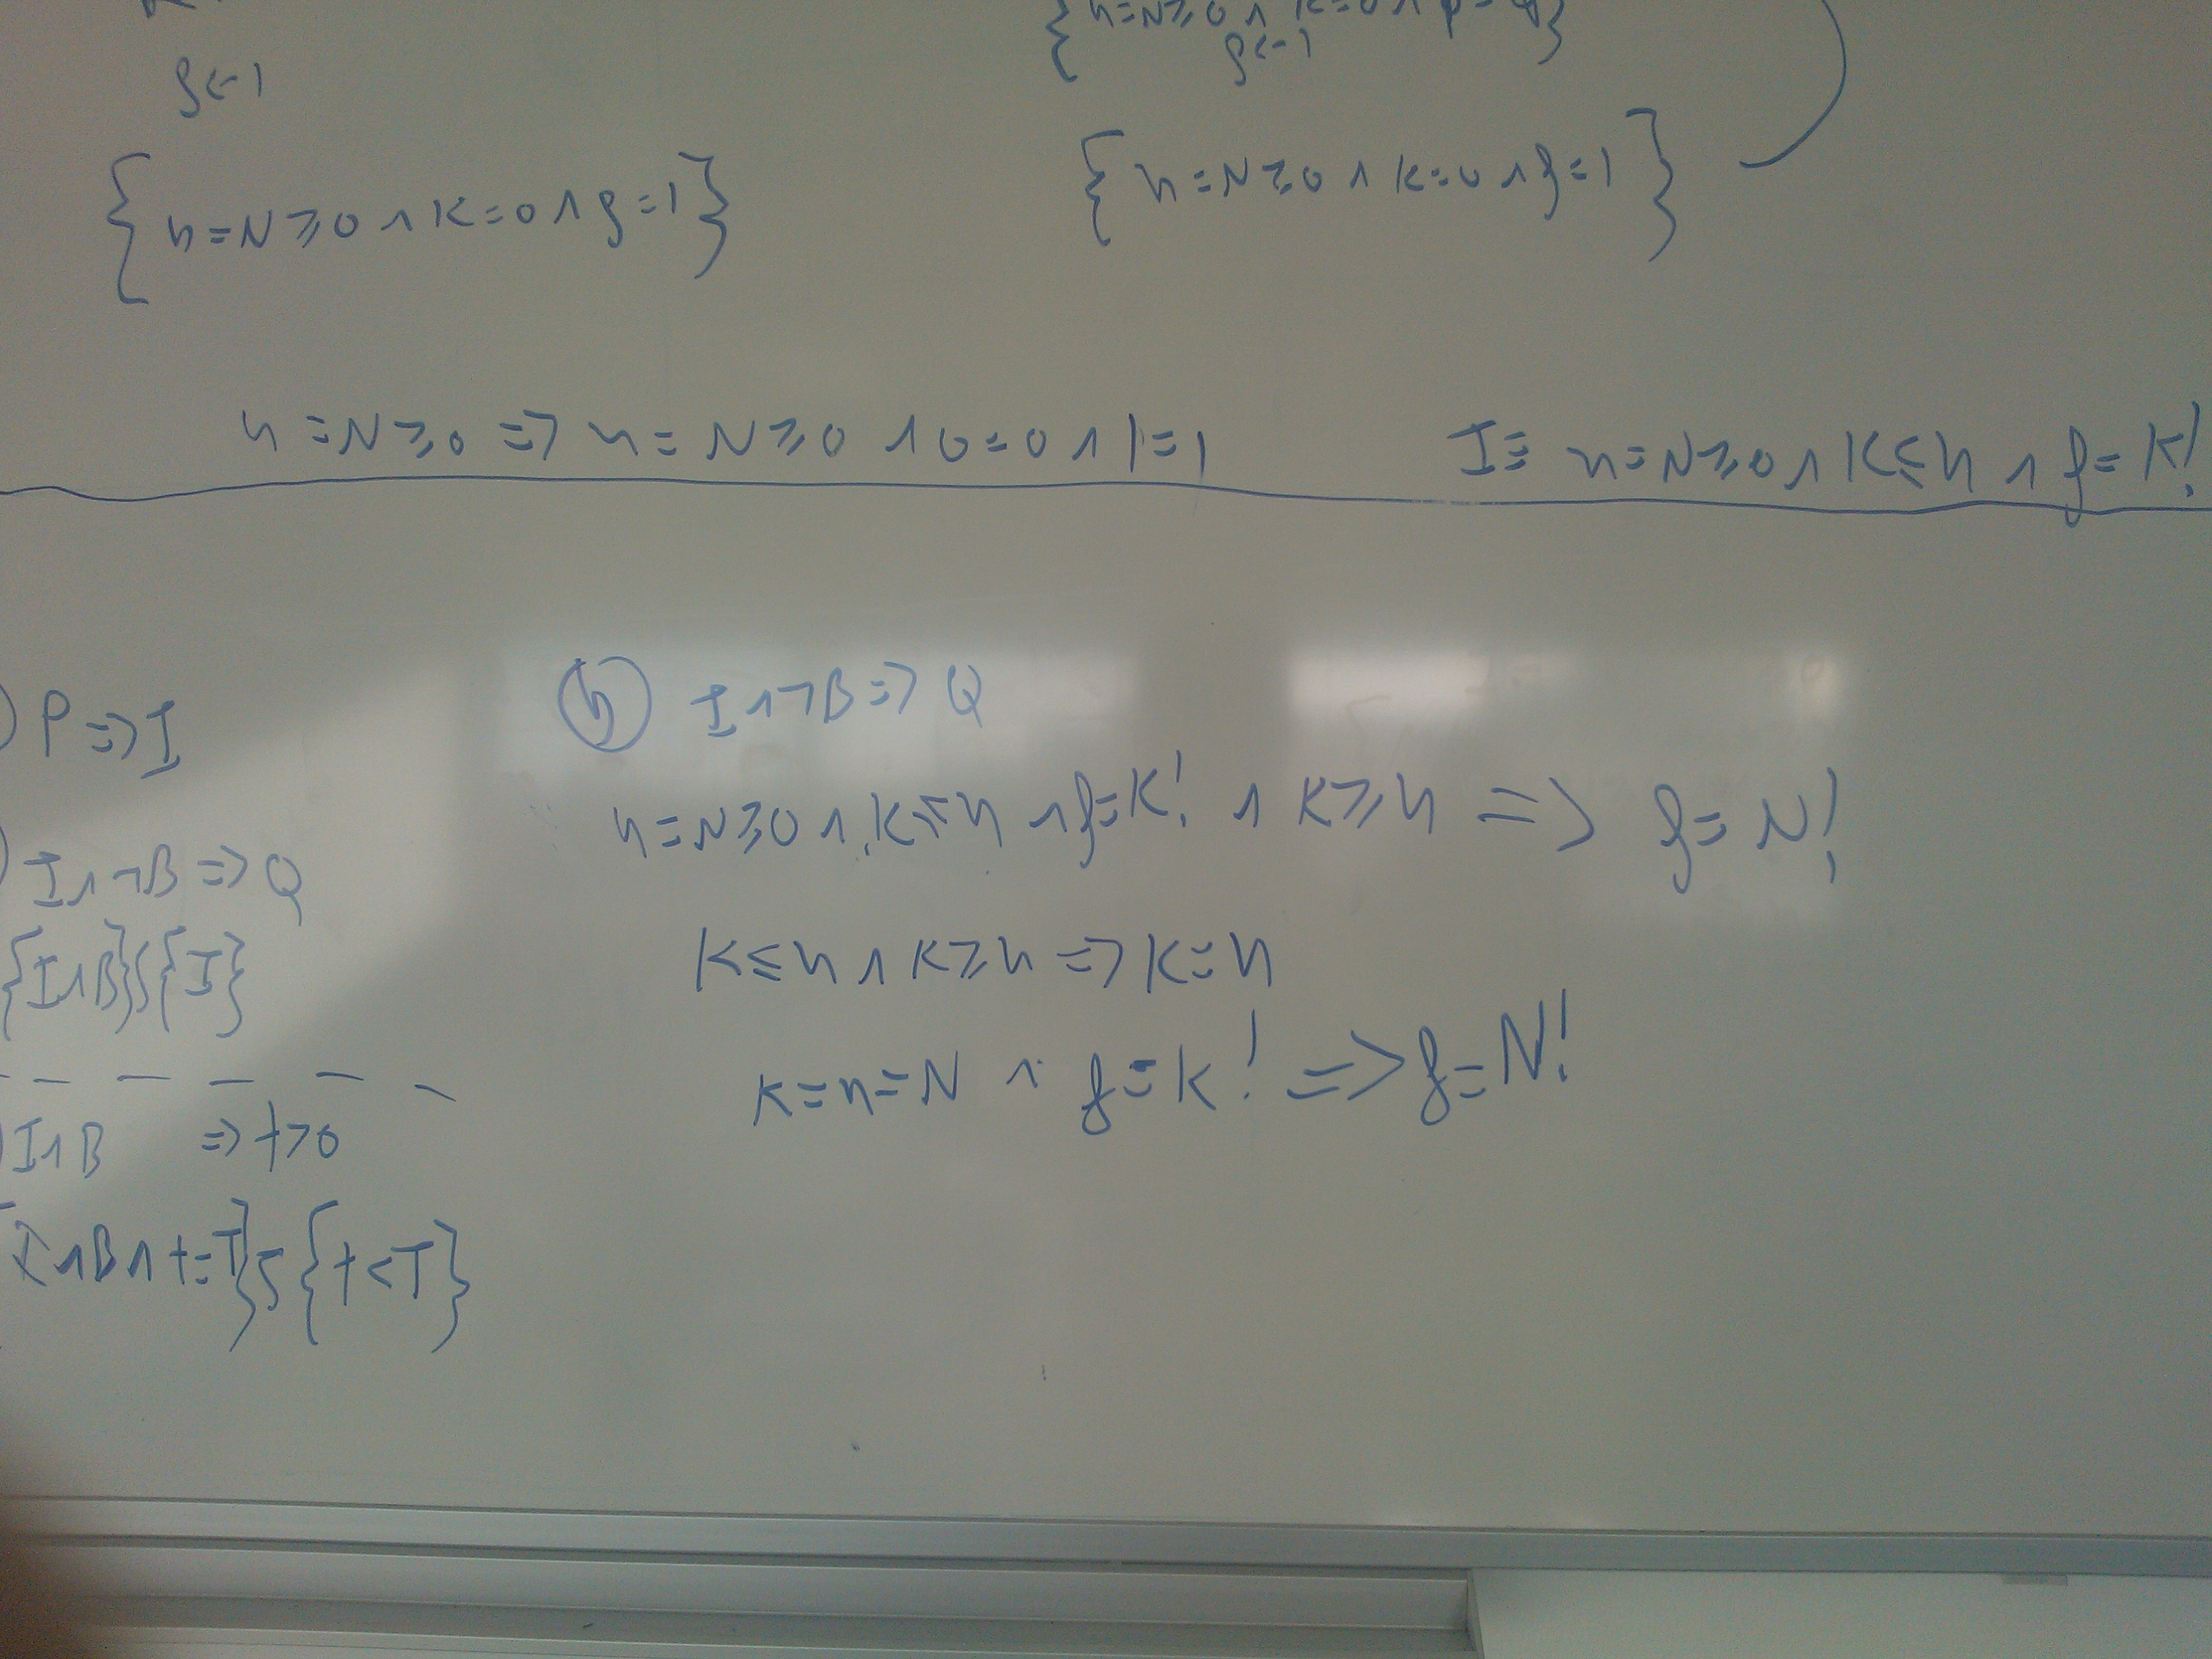 {n=N≥0 ∧ K=0 ∧
f<-1
f<-1
{n=N≥0 ∧ K=0 ∧ f=1}
{n=N≥0 ∧ K=0 ∧ f=1}
n=N≥0 => n=N≥0 ∧ 0=0 ∧ 1=1
I≡ n=N≥0 ∧ K≤n ∧ f=K!
) P=>I
) I∧¬B => Q
{I∧B}S{I}
)I∧B => t>0
I∧B∧t=T}S{t<T}
(b) I∧¬B=>Q
n=N≥0 ∧ K≤n ∧ f=K! ∧ K≥n => f=N!
K≤n ∧ K≥n => K=n
K=n=N ∧ f=K! => f=N!